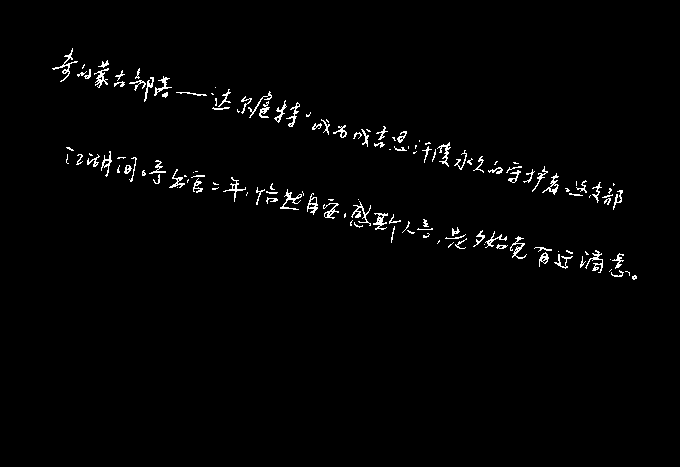 奇的蒙古部落——达尔扈特，成为成吉思汗陵永久的守护者。这支部
江湖间。予出官二年，恬然自安，感斯人言，是夕始觉有迁谪意。